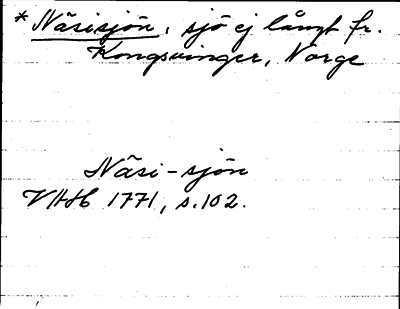 * Näsisjön, sjö ej långt fr.
Kongsvinger, Norge
Näsi-sjön
VHAH 1771, s. 102.